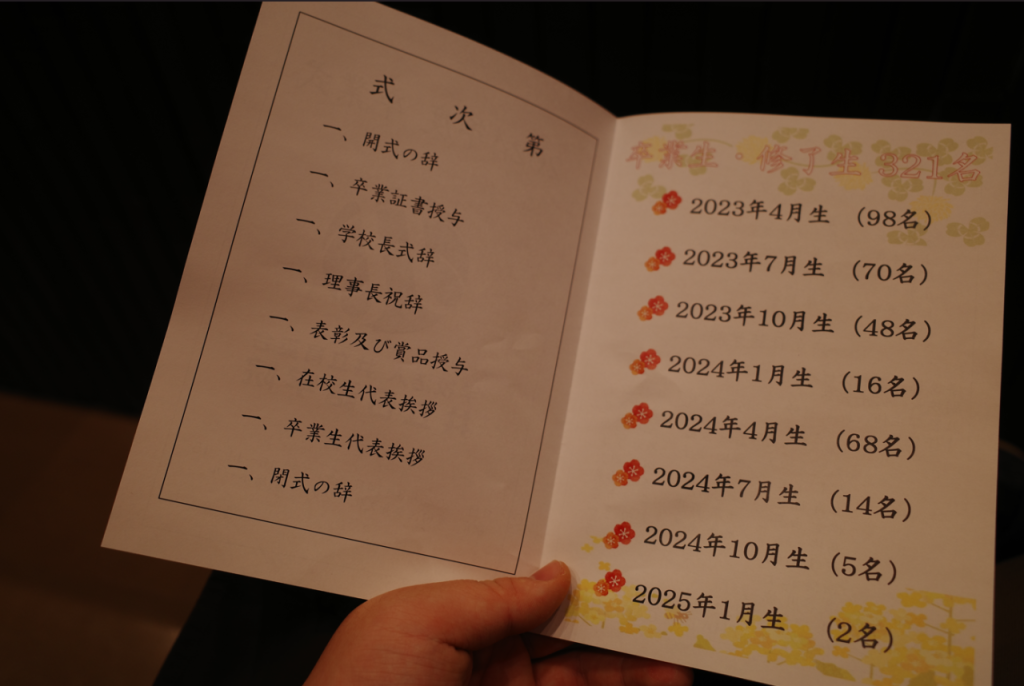 式次第
一、開式の辞
一、卒業証書授与
一、学校長式辞
一、理事長祝辞
一、表彰及び賞品授与
一、在校生代表挨拶
一、卒業生代表挨拶
一、閉式の辞
卒業生・修了生 321名
2023年4月生 (98名)
2023年7月生 (70名)
2023年10月生 (48名)
2024年1月生 (16名)
2024年4月生 (68名)
2024年7月生 (14名)
2024年10月生 (5名)
2025年1月生 (2名)